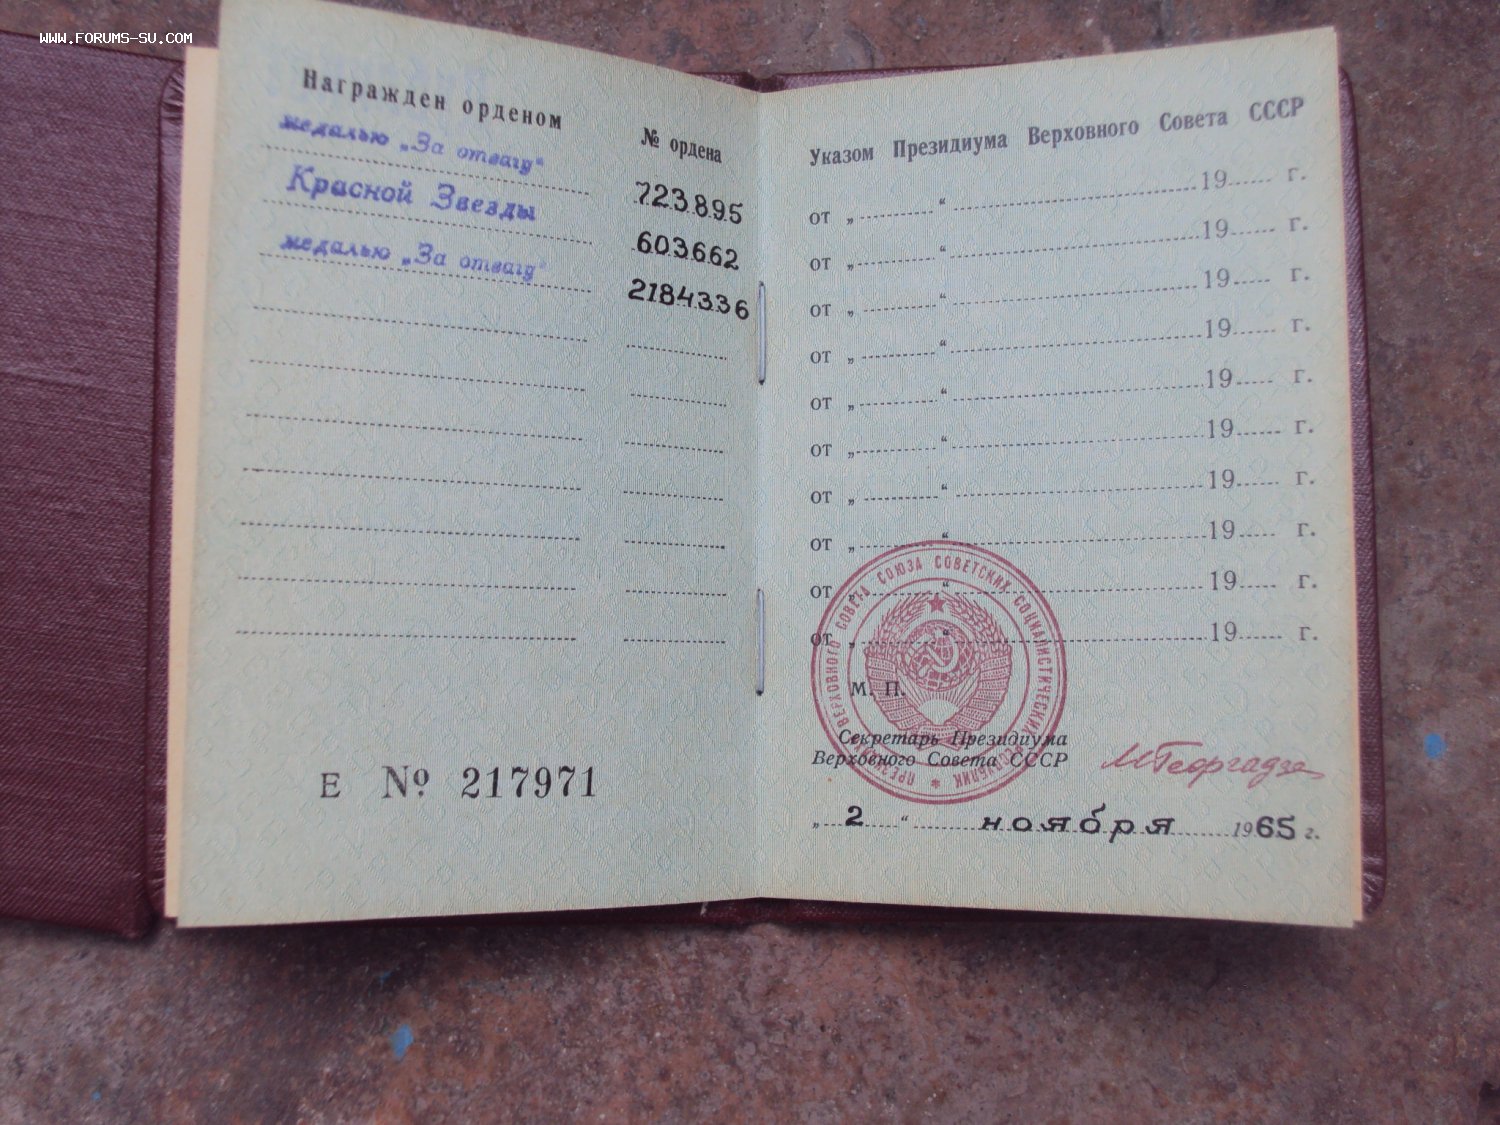 WWW.FORUMS-SU.COM
Награжден орденом № ордена
медалью „За отвагу“ 723895
Красной Звезды 603662
медалью „За отвагу“ 2184336
Е № 217971
Указом Президиума Верховного Совета СССР
от „ “ 19 г.
от „ “ 19 г.
от „ “ 19 г.
от „ “ 19 г.
от „ “ 19 г.
от „ “ 19 г.
от „ “ 19 г.
от „ “ 19 г.
от „ “ 19 г.
от „ “ 19 г.
ПРЕЗИДИУМ ВЕРХОВНОГО СОВЕТА СОЮЗА СОВЕТСКИХ СОЦИАЛИСТИЧЕСКИХ РЕСПУБЛИК
М. П.
Секретарь Президиума
Верховного Совета СССР М Георгадзе
„ 2 “ ноября 1965 г.